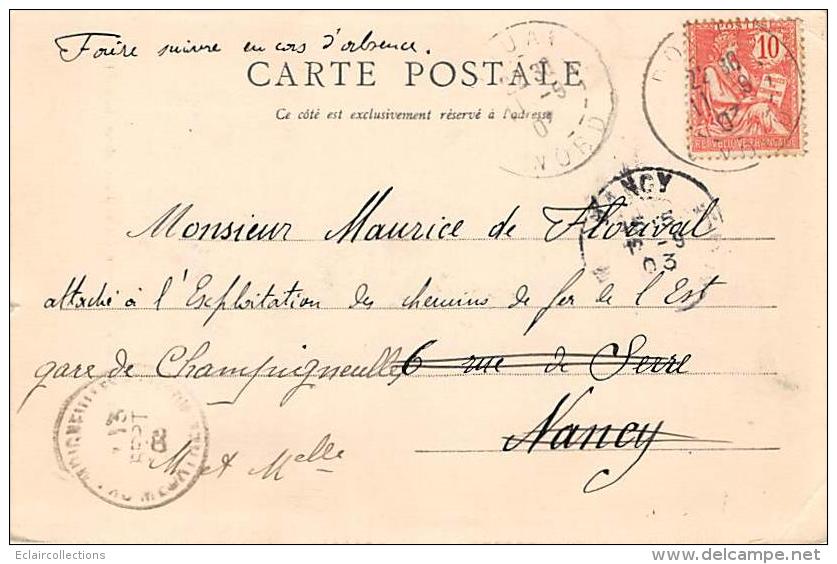 Faire suivre en cas d'absence.
CARTE POSTALE
Ce côté est exclusivement réservé à l'adresse
POSTES
10
NORD
NANCY
03
Monsieur Maurice de Florival
attaché à l'Exploitation des chemins de fer de l'Est
gare de Champigneulles 6 rue de Serre
Nancy
M et Melle
SEPT
Eclaircollections
www.delcampe.net